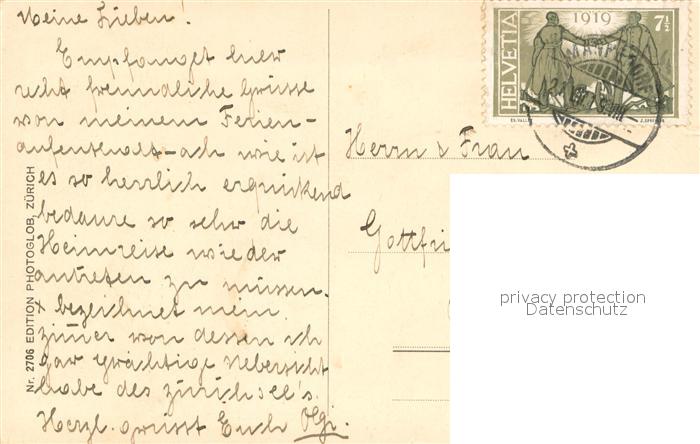 Meine Lieben!
Empfanget hier
recht freundliche Grüsse
von meinem Ferien-
aufenthalt - ach wie ist
es so herrlich erquickend
bedaure so sehr die
Heimreise wieder
antreten zu müssen.
x bezeichnet mein
zimer von dessen ich
gar prächtige Uebersicht
habe des zürichsee's.
Herzl. grüsst Euch Olgi.
Nr. 2706 EDITION PHOTOGLOB, ZÜRICH
HELVETIA
1919
7½
Herrn & Frau
Gottfri
privacy protection
Datenschutz